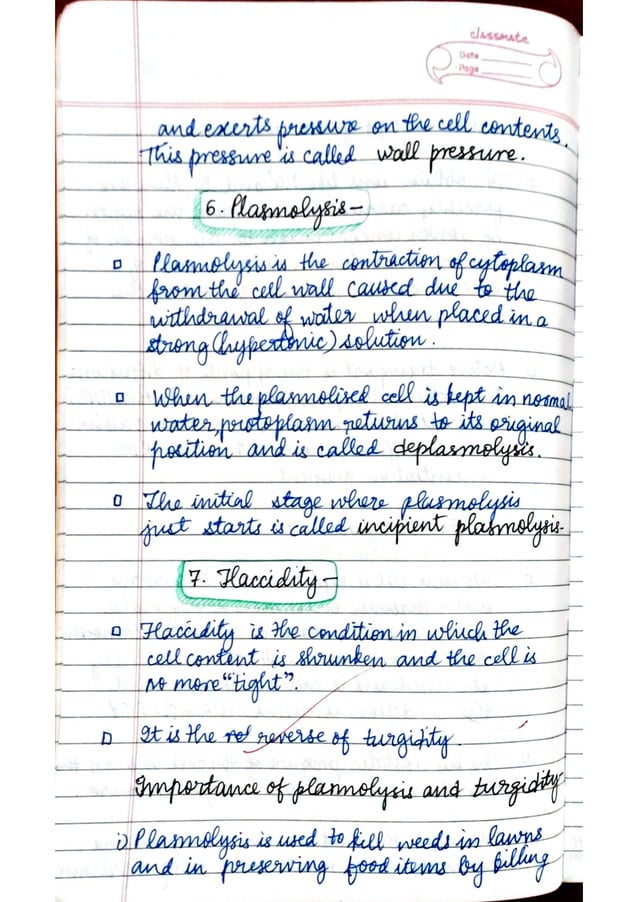 classmate
Date
Page
and exerts pressure on the cell contents.
This pressure is called wall pressure.
6. Plasmolysis-
Plasmolysis is the contraction of cytoplasm
from the cell wall caused due to the
withdrawal of water when placed in a
strong (hypertonic) solution.
When the plasmolised cell is kept in normal
water, protoplasm returns to its original
position and is called deplasmolysis.
The initial stage where plasmolysis
just starts is called incipient plasmolysis-
7. Flaccidity-
Flaccidity is the condition in which the
cell content is shrunken and the cell is
no more "tight".
It is the reverse of turgidity.
Importance of plasmolysis and turgidity
i) Plasmolysis is used to kill weeds in lawns
and in preserving food items by killing